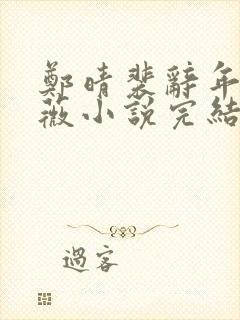 鄭晴裴辭年
薇小說完結
過客